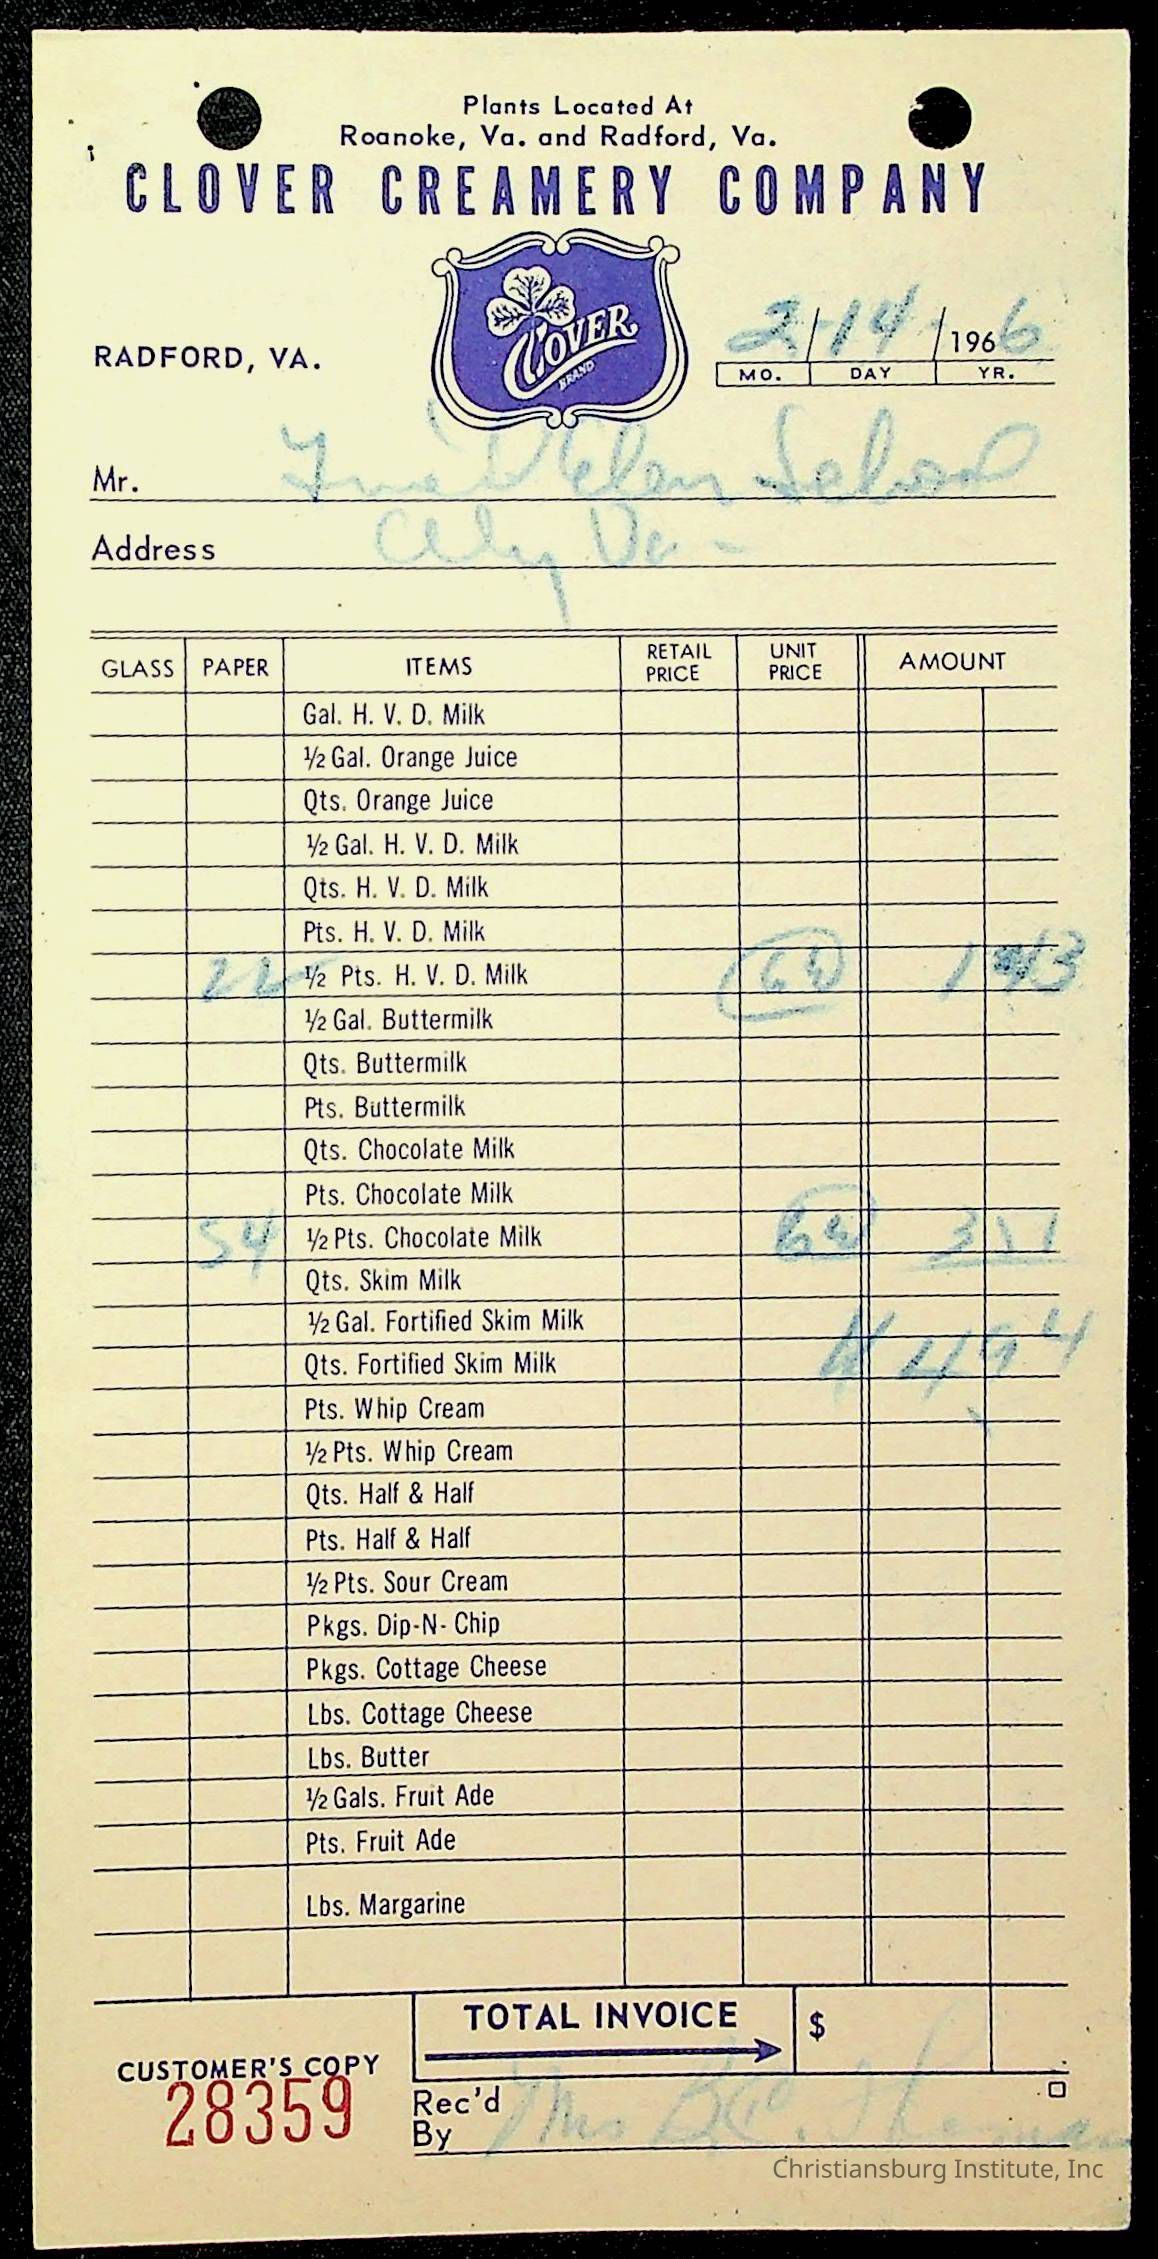 Plants Located At
Roanoke, Va. and Radford, Va.
CLOVER CREAMERY COMPANY
CLOVER
BRAND
RADFORD, VA.
2/14/1966
MO. DAY YR.
Mr. School
Address City Va-
GLASS PAPER ITEMS RETAIL PRICE UNIT PRICE AMOUNT
Gal. H. V. D. Milk
½ Gal. Orange Juice
Qts. Orange Juice
½ Gal. H. V. D. Milk
Qts. H. V. D. Milk
Pts. H. V. D. Milk
22 ½ Pts. H. V. D. Milk 1 43
½ Gal. Buttermilk
Qts. Buttermilk
Pts. Buttermilk
Qts. Chocolate Milk
Pts. Chocolate Milk
54 ½ Pts. Chocolate Milk 3 51
Qts. Skim Milk
½ Gal. Fortified Skim Milk
4 94
Qts. Fortified Skim Milk
Pts. Whip Cream
½ Pts. Whip Cream
Qts. Half & Half
Pts. Half & Half
½ Pts. Sour Cream
Pkgs. Dip-N-Chip
Pkgs. Cottage Cheese
Lbs. Cottage Cheese
Lbs. Butter
½ Gals. Fruit Ade
Pts. Fruit Ade
Lbs. Margarine
TOTAL INVOICE $
CUSTOMER'S COPY
28359
Rec'd By Mrs
Christiansburg Institute, Inc